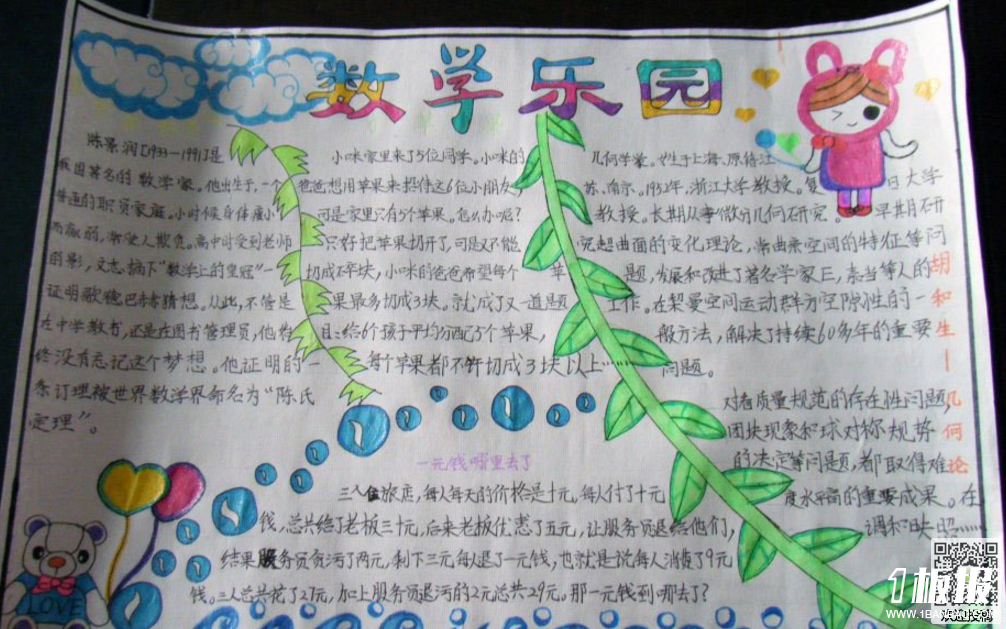 数学乐园
陈景润[1933-1991]是
我国著名的数学家。他出生于,一个
普通的职员家庭。小时候身体瘦小
而瘦弱,常受人欺负。高中时受到老师
的影,立志摘下"数学上的皇冠"一
证明歌德巴赫猜想。从此,不管是
在中学教书,还是在图书管理员,他
终没有忘记这个梦想。他证明的一
条订理被世界数学界命名为"陈氏
定理"。
小咪家里来了5位同学。小咪的
爸爸想用苹果来招待这6位小朋友
可是家里只有5个苹果。怎么办呢?
只好把苹果切开了,可是又不能
切成碎块,小咪的爸爸希望每个苹
果最多切成3块。就成了又一道题
目:给6个孩子平均分配5个苹果,
每个苹果都不许切成3块以上……
几何学家。生于上海、原待江
苏、南京。1952年,浙江大学教授。复旦大学
教授。长期从事微分几何研究。早期研
究超曲面的变化理论,常曲率空间的特征等问
题,发展和改进了著名学家E,嘉当等人的
工作。在契曼空间运动群方空隙性的一
般方法,解决了持续60多年的重要
问题。
对着质量规范的存在性问题,
团块现象和球对称规势
的决定等问题,都取得难
度水平高的重要成果。在
调和映照……
胡和生一几何论
一元钱哪里去了
三人住旅店,每人每天的价格是十元,每人付了十元
钱,总共给了老板三十元,后来老板优惠了五元,让服务员退给他们,
结果服务员贪污了两元,剩下三元每人退了一元钱,也就是说每人消费了9元
钱。三人总共花了27元,加上服务员退污的2元总共29元。那一元钱到哪去了?
LOVE
1板报
WWW.1BANBAO.COM
欢迎投稿